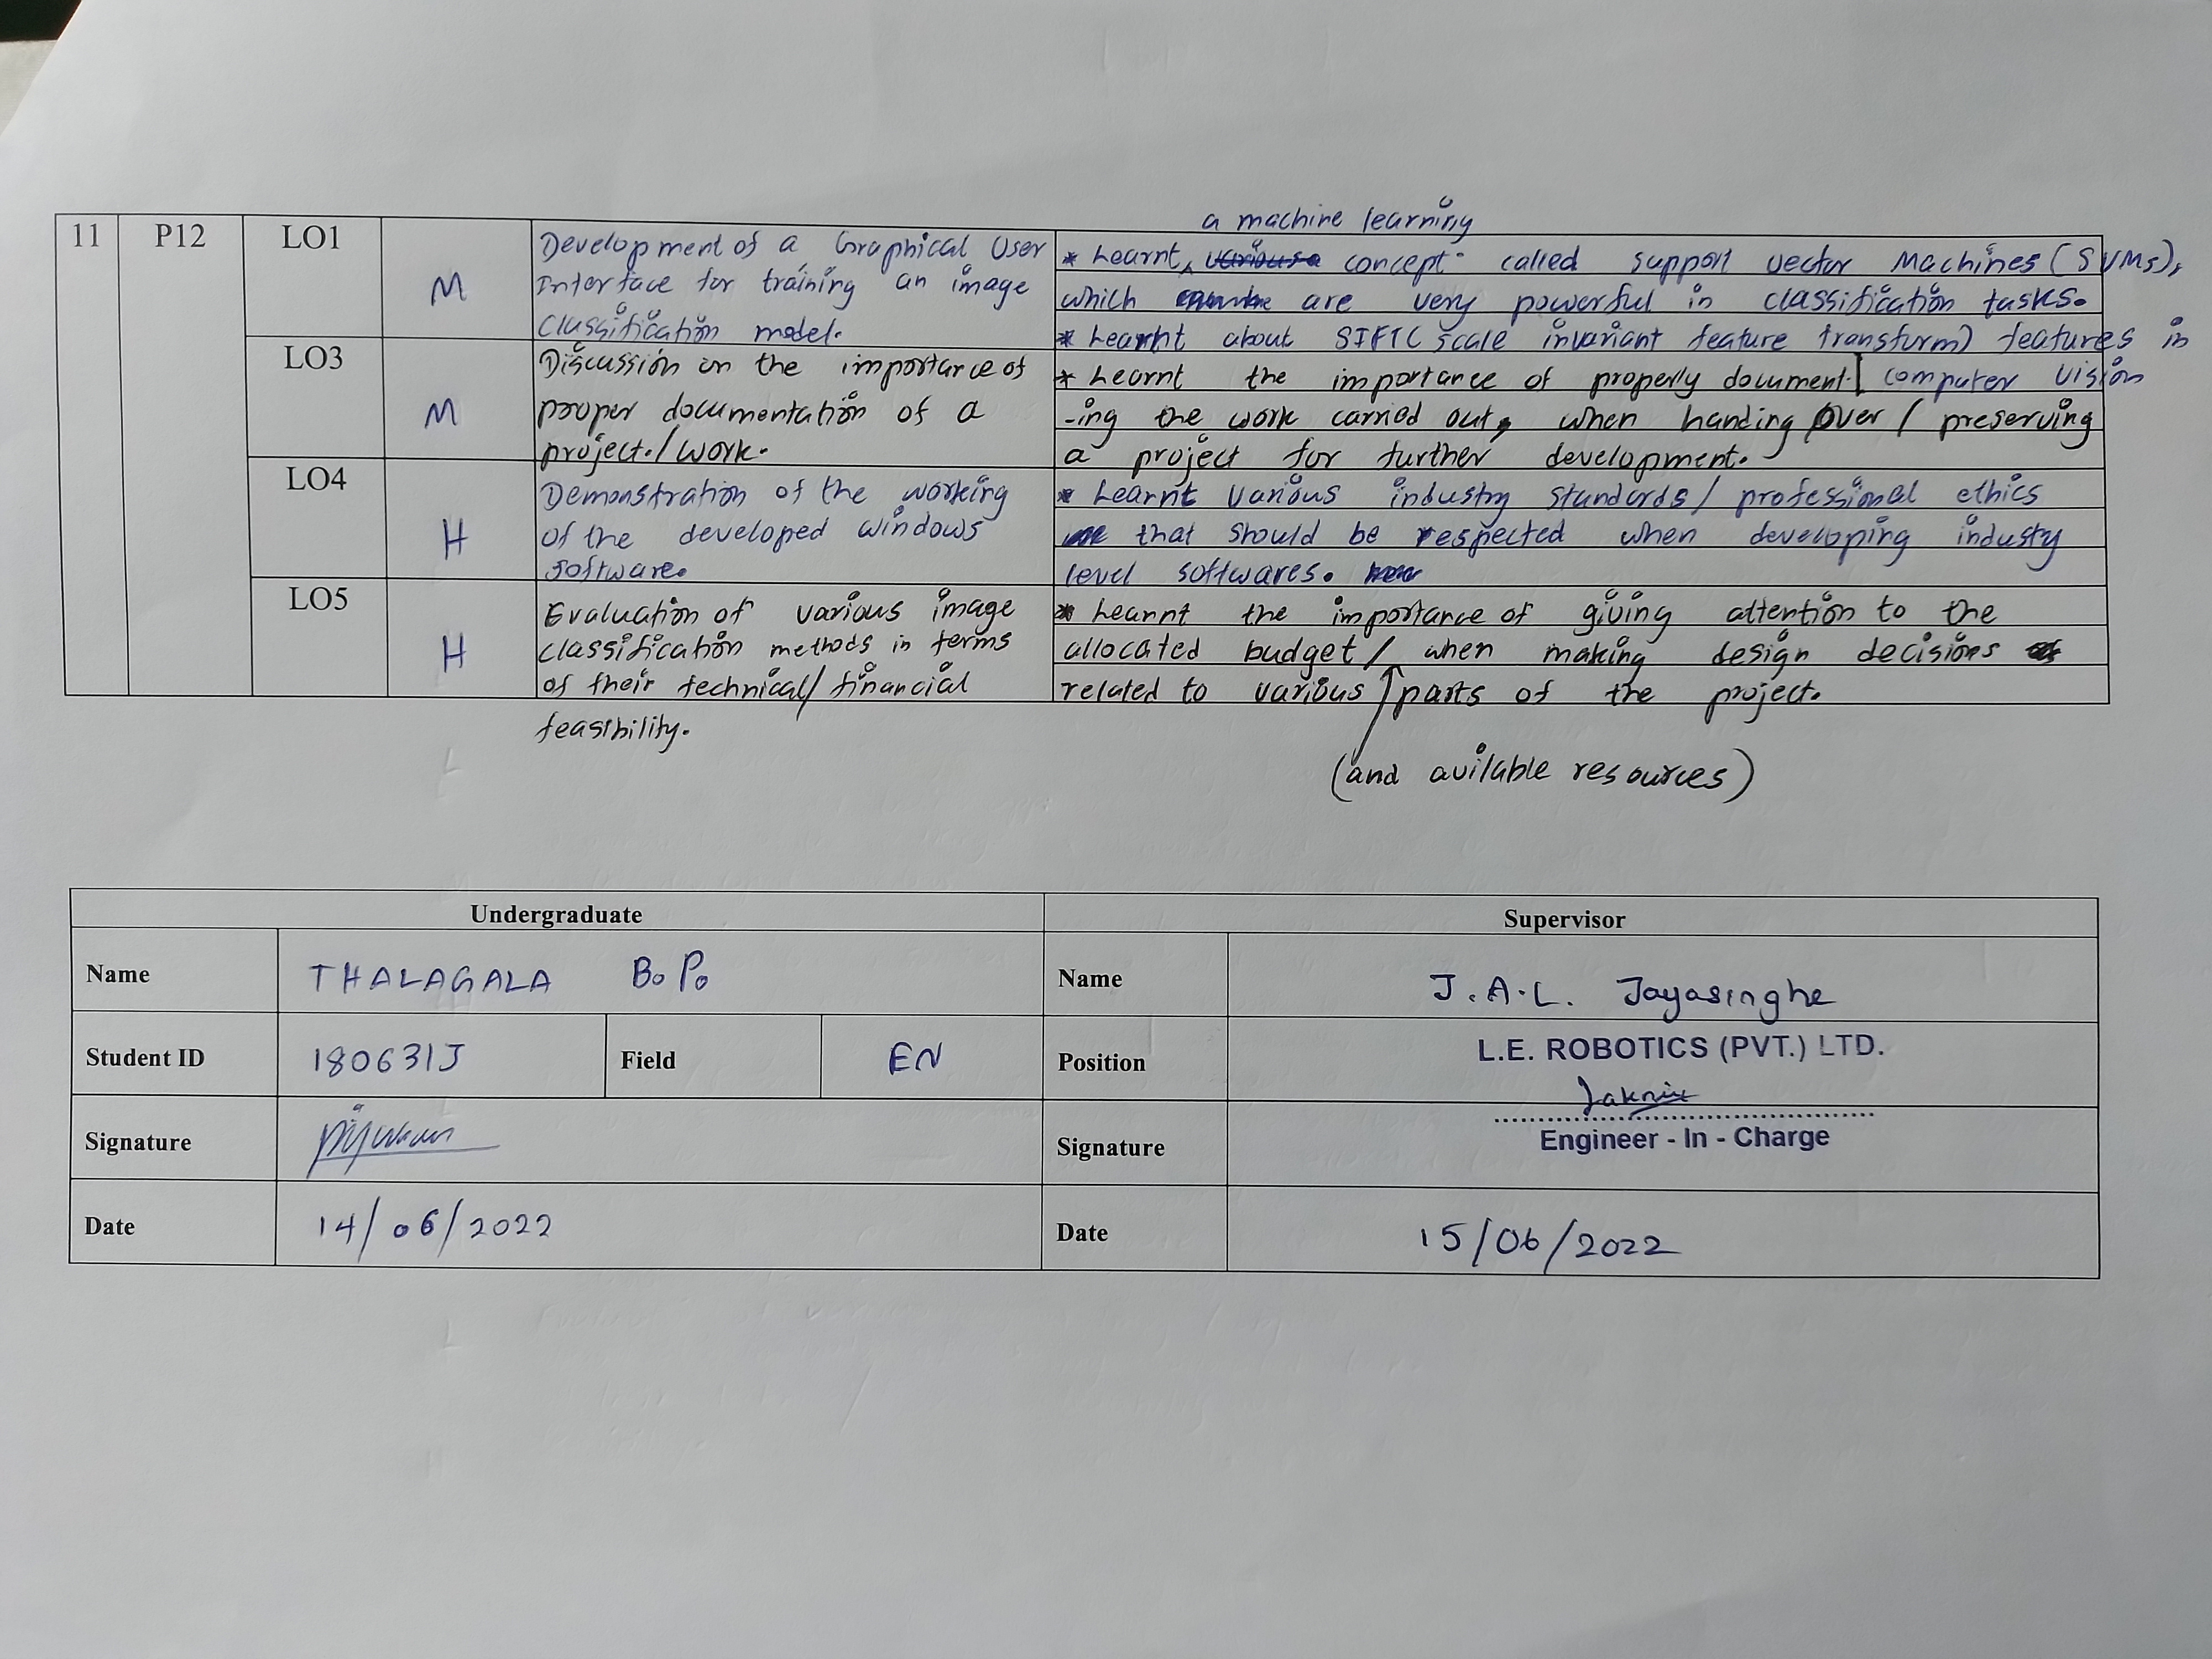 11 P12 LO1 M Development of a Graphical User
Interface for training an image
Classification model.
a machine learning
* Learnt concept called support vector machines (SVMs),
which are very powerful in classification tasks.
* Learnt about SIFT (Scale invariant feature transform) features in
computer vision
LO3 M Discussion on the importance of
proper documentation of a
project/work.
* Learnt the importance of properly document
-ing the work carried out, when handing over / preserving
a project for further development.
LO4 H Demonstration of the working
of the developed windows
software.
* Learnt various industry standards / professional ethics
that should be respected when developing industry
level softwares.
LO5 H Evaluation of various image
classification methods in terms
of their technical/financial
feasibility.
* Learnt the importance of giving attention to the
allocated budget / when making design decisions
related to various parts of the project.
(and available resources)
Undergraduate Supervisor
Name THALAGALA B.P. Name J.A.L. Jayasinghe
Student ID 180631J Field EN Position L.E. ROBOTICS (PVT.) LTD.
Signature Signature
Engineer - In - Charge
Date 14/06/2022 Date 15/06/2022